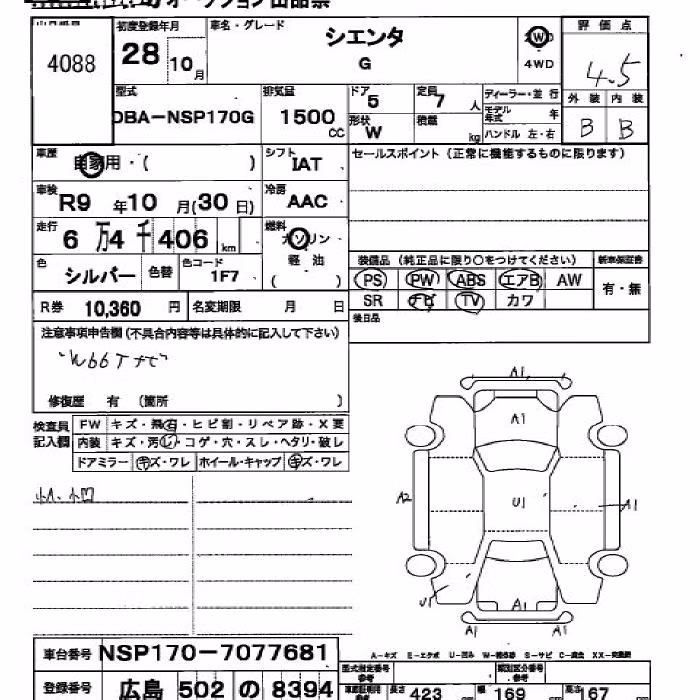 オークション出品票
出品番号
4088
初度登録年月
28
10月
車名・グレード
シエンタ
G
W
4WD
評価点
4.5
外装 内装
B B
型式
DBA-NSP170G
排気量
1500
CC
ドア
5
定員
7人
形状
W
積載
kg
ディーラー・並行
モデル年式 年
ハンドル 左・右
車歴
自家用・( )
シフト
IAT
セールスポイント (正常に機能するものに限ります)
車検
R9年10月(30日)
冷房
AAC
走行
6万4千406km
燃料
ガソリン・
軽油
( )
色
シルバー
色替
色コード
1F7
装備品 (純正品に限り○をつけてください)
新車保証書
PS PW ABS エアB AW
有・無
SR ナビ TV カワ
後日品
R券 10,360円
名変期限 月 日
注意事項申告欄(不具合内容等は具体的に記入して下さい)
修復歴 有 (箇所 )
検査員
記入欄
FW キズ・飛石・ヒビ割・リペア跡・X要
内装 キズ・汚レ・コゲ・穴・スレ・ヘタリ・破レ
ドアミラー キズ・ワレ ホイール・キャップ キズ・ワレ
小A、小凹
A1
A1
A2
U1
A1
U1
A1
A1
A1
A-キズ E-エクボ U-凹み W-補修跡 S-サビ C-腐食 XX-交換済
車台番号 NSP170-7077681
登録番号 広島 502 の 8394
型式指定番号
参考
類別区分番号
参考
長さ 423 cm
幅 169 cm
高さ 167 cm